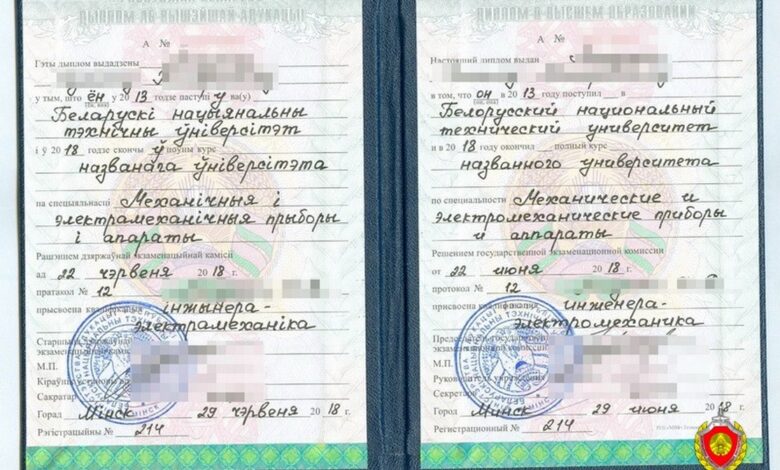 ДЫПЛОМ АБ ВЫШЭЙШАЙ АДУКАЦЫІ
А №
Гэты дыплом выдадзены
у тым, што ён у 2013 годзе паступіў у ва(у)
Беларускі нацыянальны
тэхнічны ўніверсітэт
і ў 2018 годзе скончыў поўны курс
названага ўніверсітэта
па спецыяльнасці Механічныя і
электрамеханічныя прыборы
і апараты
Рашэннем дзяржаўнай экзаменацыйнай камісіі
ад 22 чэрвеня 2018 г.
пратакол № 12
прысвоена кваліфікацыя інжынера-
электрамеханіка
М.П.
Сакратар
Горад Мінск 29 чэрвеня 2018 г.
Рэгістрацыйны № 214
ДИПЛОМ О ВЫСШЕМ ОБРАЗОВАНИИ
А №
Настоящий диплом выдан
в том, что он в 2013 году поступил в
Белорусский национальный
технический университет
и в 2018 году окончил полный курс
названного университета
по специальности Механические и
электромеханические приборы
и аппараты
Решением государственной экзаменационной комиссии
от 22 июня 2018 г.
протокол № 12
присвоена квалификация инженера-
электромеханика
М.П.
Руководитель учреждения
Секретарь
Город Минск 29 июня 2018 г.
Регистрационный № 214